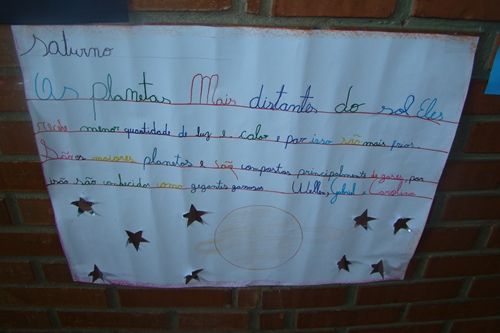 Saturno
Os planetas Mais distantes do sol Eles
recebe menor quantidade de luz e calor e por isso são mais frios
São os maiores planetas e são compostos principalmente de gazes, por
isso são conhecidos como gigantes gasosos Wellen, Gabriel e Carolina